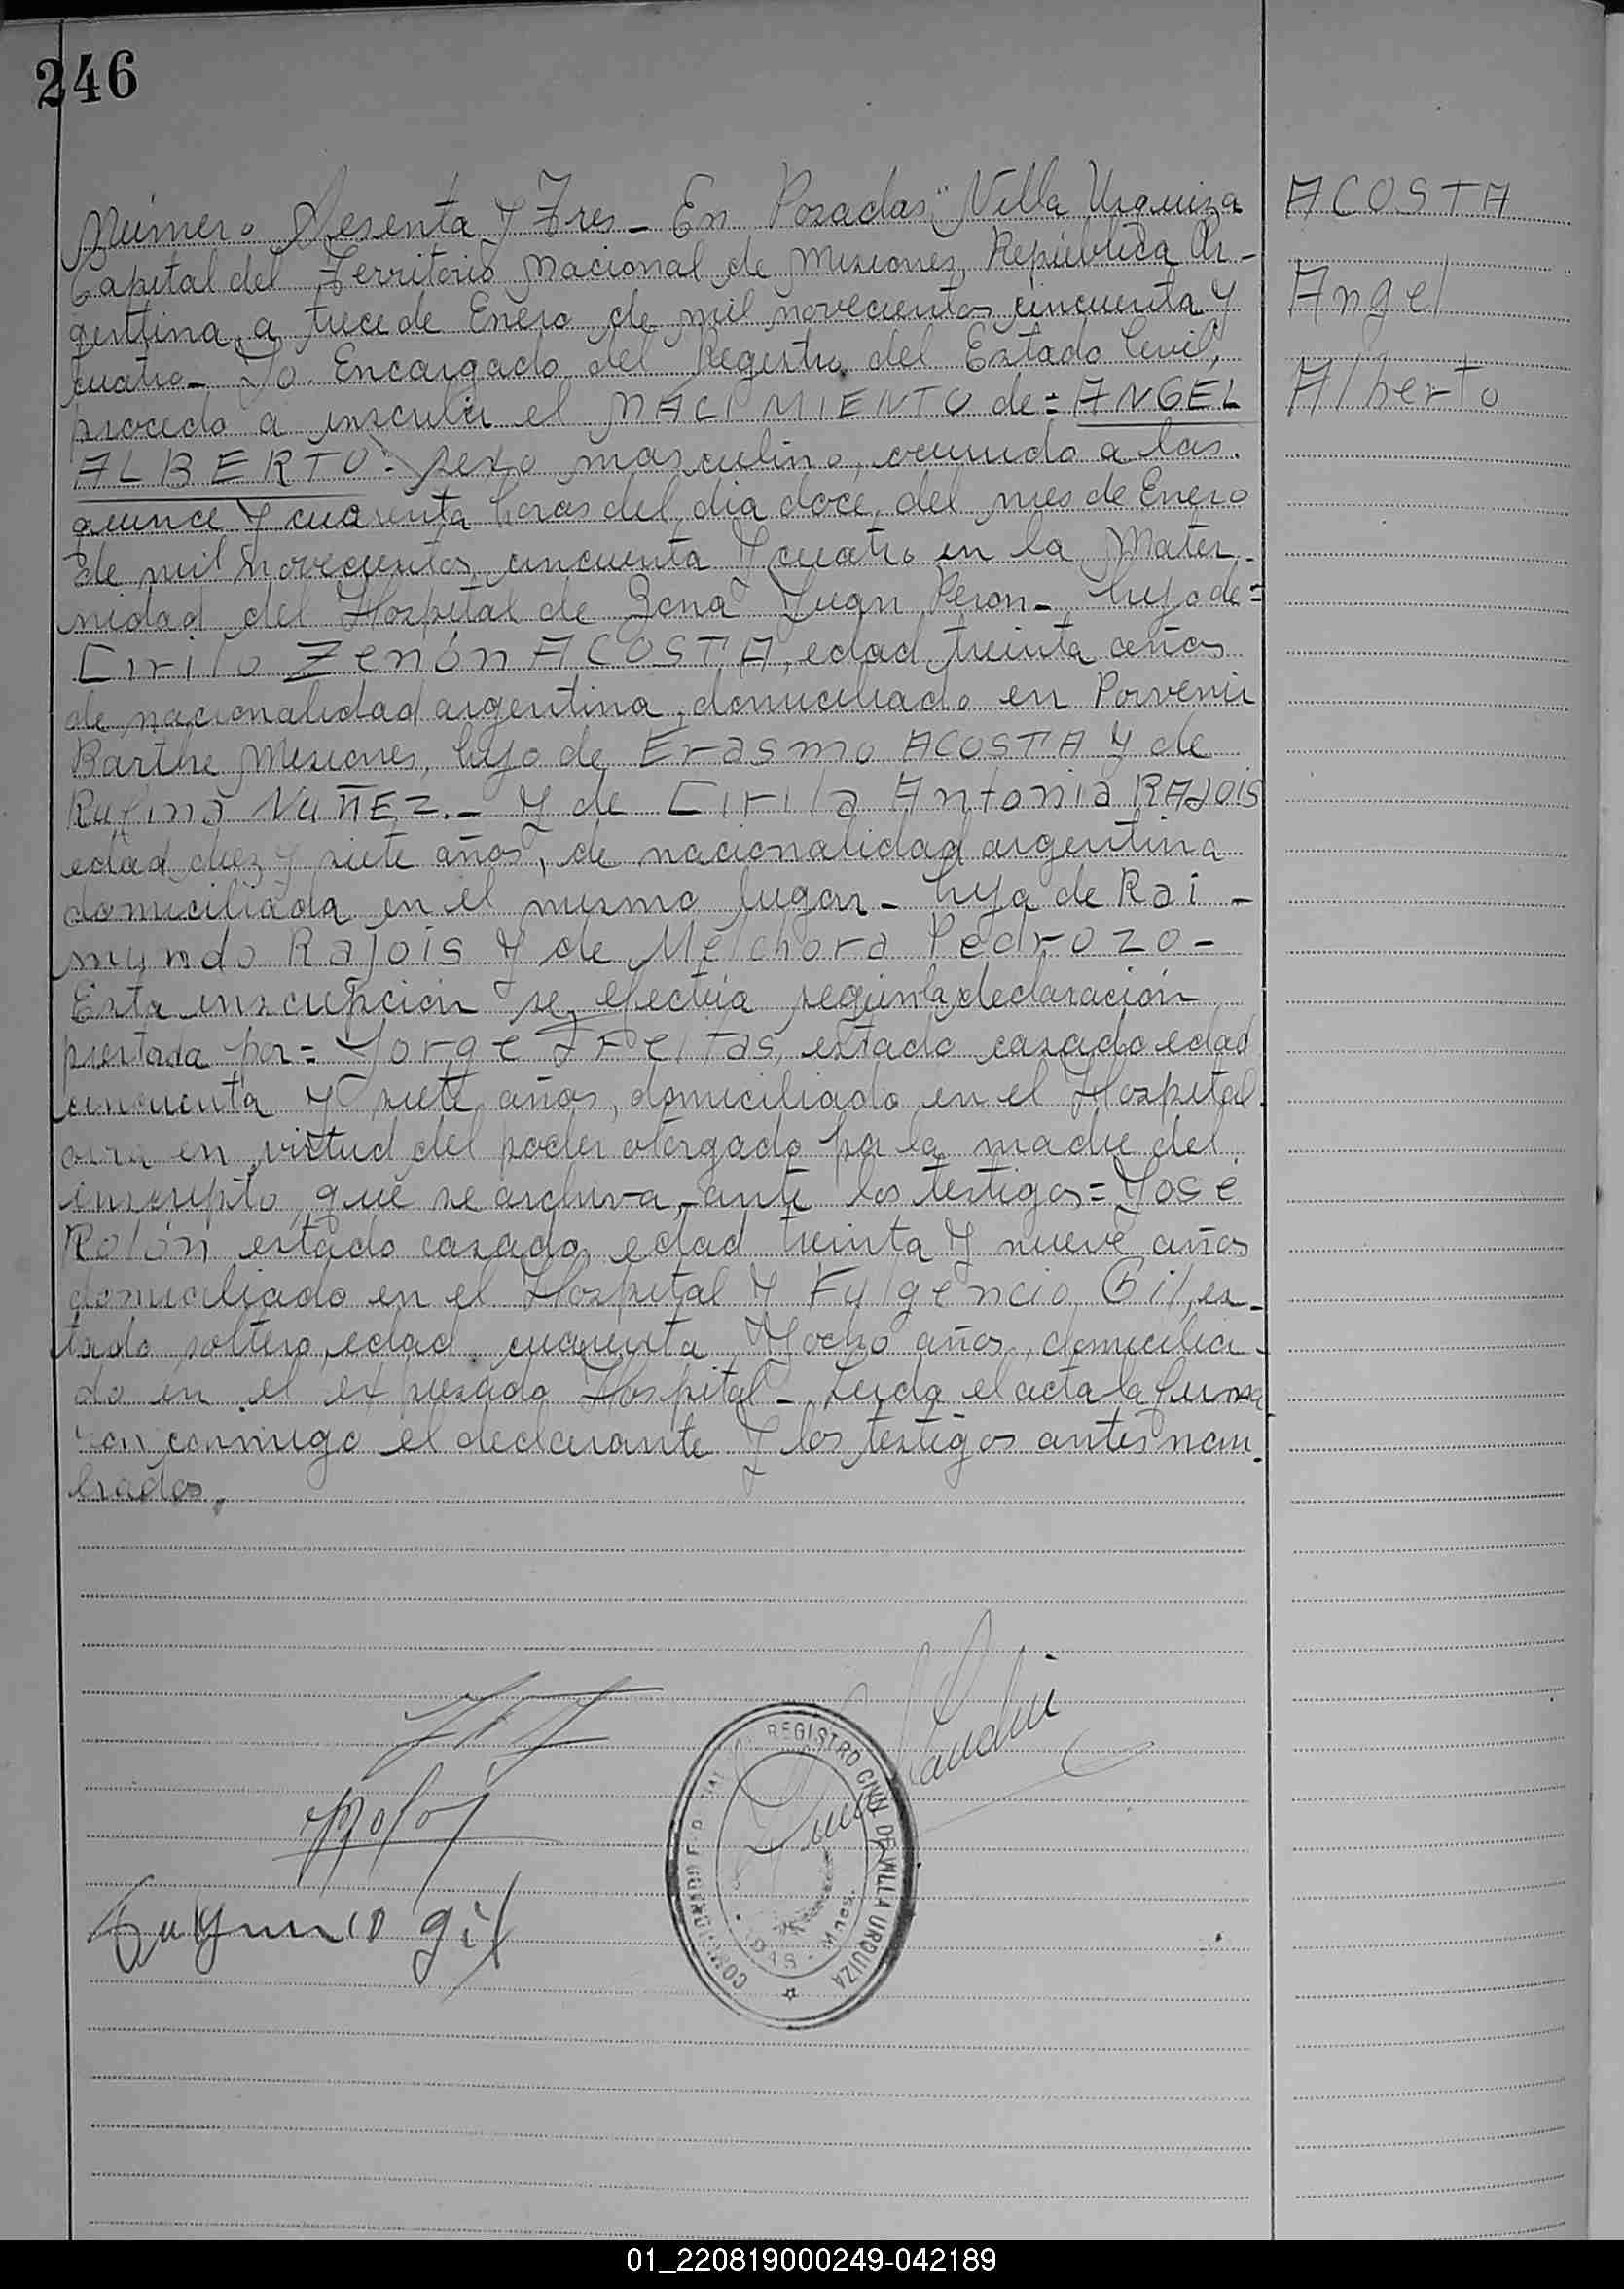 246
Número Sesenta y Tres_ En Posadas "Villa Urquiza
Capital del Territorio Nacional de Misiones, República Ar-
genttina, a trece de Enero de mil novecientos cincuenta y
cuatro_ Yo. Encargado del Registro del Estado Civil,
procedo a inscribir el NACIMIENTO de= ANGEL
ALBERTO: sexo masculino, ocurrido a las
quince y cuarenta horas del dia doce, del mes de Enero
de mil novecientos cincuenta y cuatro en la Mater-
nidad del Hospital de Zona Juan Peron_ hijo de=
Cirilo Zenón ACOSTA, edad treinta años
de nacionalidad argentina, domiciliado en Porvenir
Barthe Misiones, hijo de Erasmo ACOSTA y de
Rufina NUÑEZ._ y de Cirila Antonia RAJOIS
edad diez y siete años, de nacionalidad argentina
domiciliada en el mismo lugar_ hija de Rai-
mundo Rajois y de Melchora Pedrozo-
Esta inscripción se efectúa según la declaración
prestada por= Jorge Freitas, estado casado edad
cincuenta y siete años, domiciliado en el Hospital
en virtud del poder otorgado por la madre del
inscripto, que se archiva,_ ante los testigos= José
Rolón estado casado, edad treinta y nueve años
domiciliado en el Hospital y Fulgencio Gil, es-
tado soltero, edad cuarenta y ocho años, domicilia-
do en el expresado Hospital_ Leida el acta la firma
ron conmigo el declarante y los testigos antes nom
brados.
ACOSTA
Angel
Alberto
Rolon
Fulgencio Gil
REGISTRO CIVIL DE VILLA URQUIZA
Mnes.
01_220819000249-042189